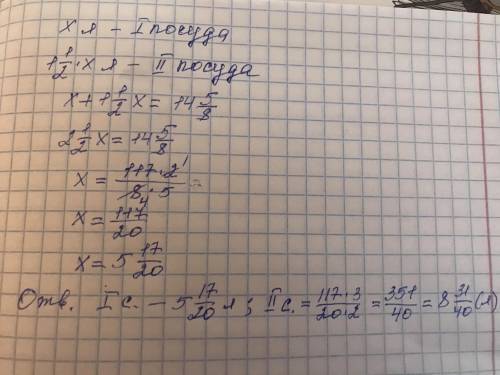 х л – I посуда
1 1/2 · х л – II посуда
х + 1 1/2 х = 14 5/8
2 1/2 х = 14 5/8
х = 117 · 2 1 / 8 4 · 5 =
х = 117/20
х = 5 17/20
Отв. I с. – 5 17/20 л ; II с. = 117 · 3 / 20 · 2 = 351/40 = 8 31/40 (л)